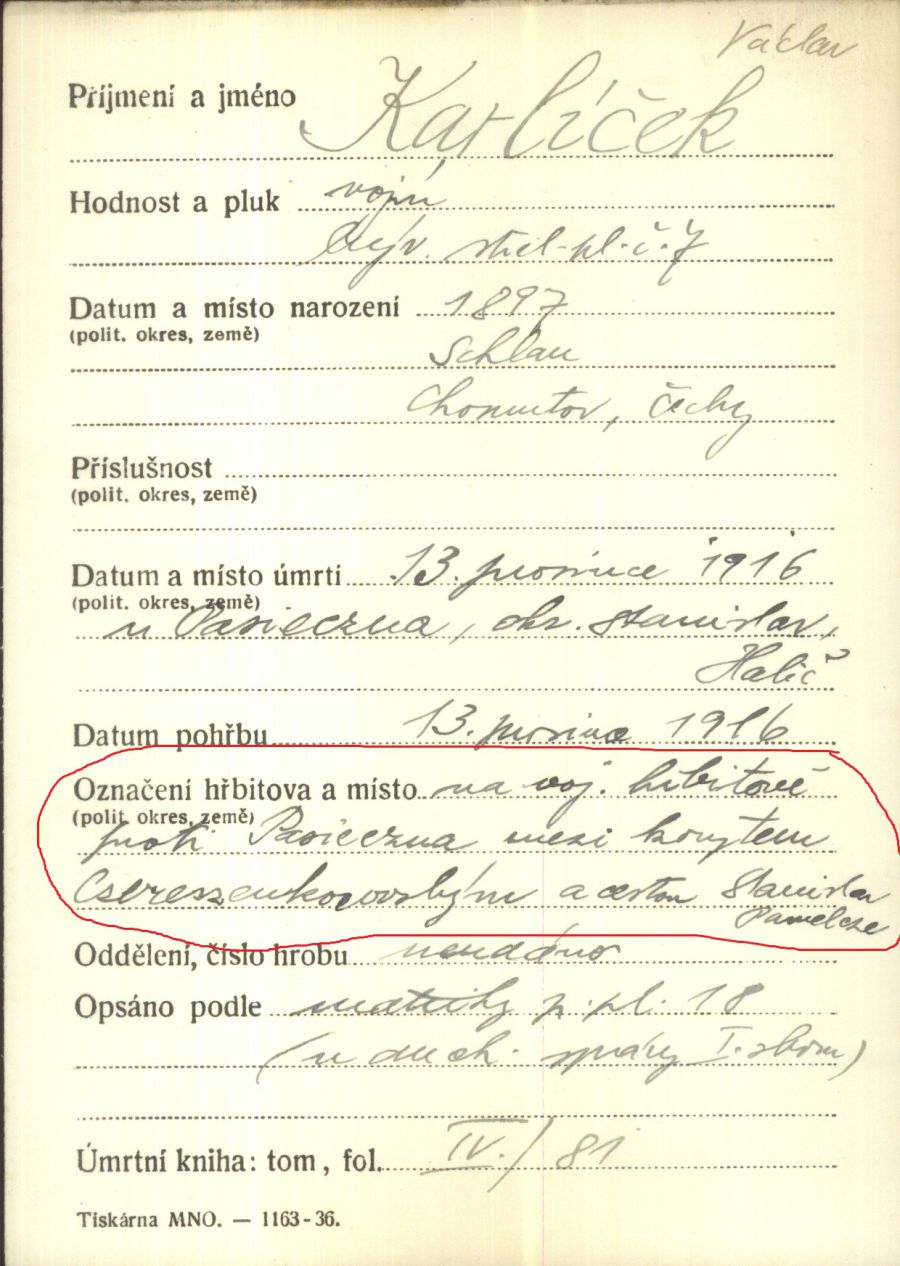 Václav
Příjmení a jméno Karlíček
Hodnost a pluk vojín
býv. střel. pl. č. 7
Datum a místo narození 1897
(polit. okres, země)
Schlau
Chomutov, Čechy
Příslušnost
(polit. okres, země)
Datum a místo úmrtí 13. prosince 1916
(polit. okres, země)
u Pasieczna, okr. Stanislav,
Halič
Datum pohřbu 13. prosince 1916
Označení hřbitova a místo na voj. hřbitově
(polit. okres, země)
proti Pasieczna mezi korytem
a cestou Stanislav
Pawelcze
Oddělení, číslo hrobu neudáno
Opsáno podle matriky p. pl. 18
(u duch. správy I. sboru)
Úmrtní kniha: tom, fol. IV./81
Tiskárna MNO. — 1163-36.